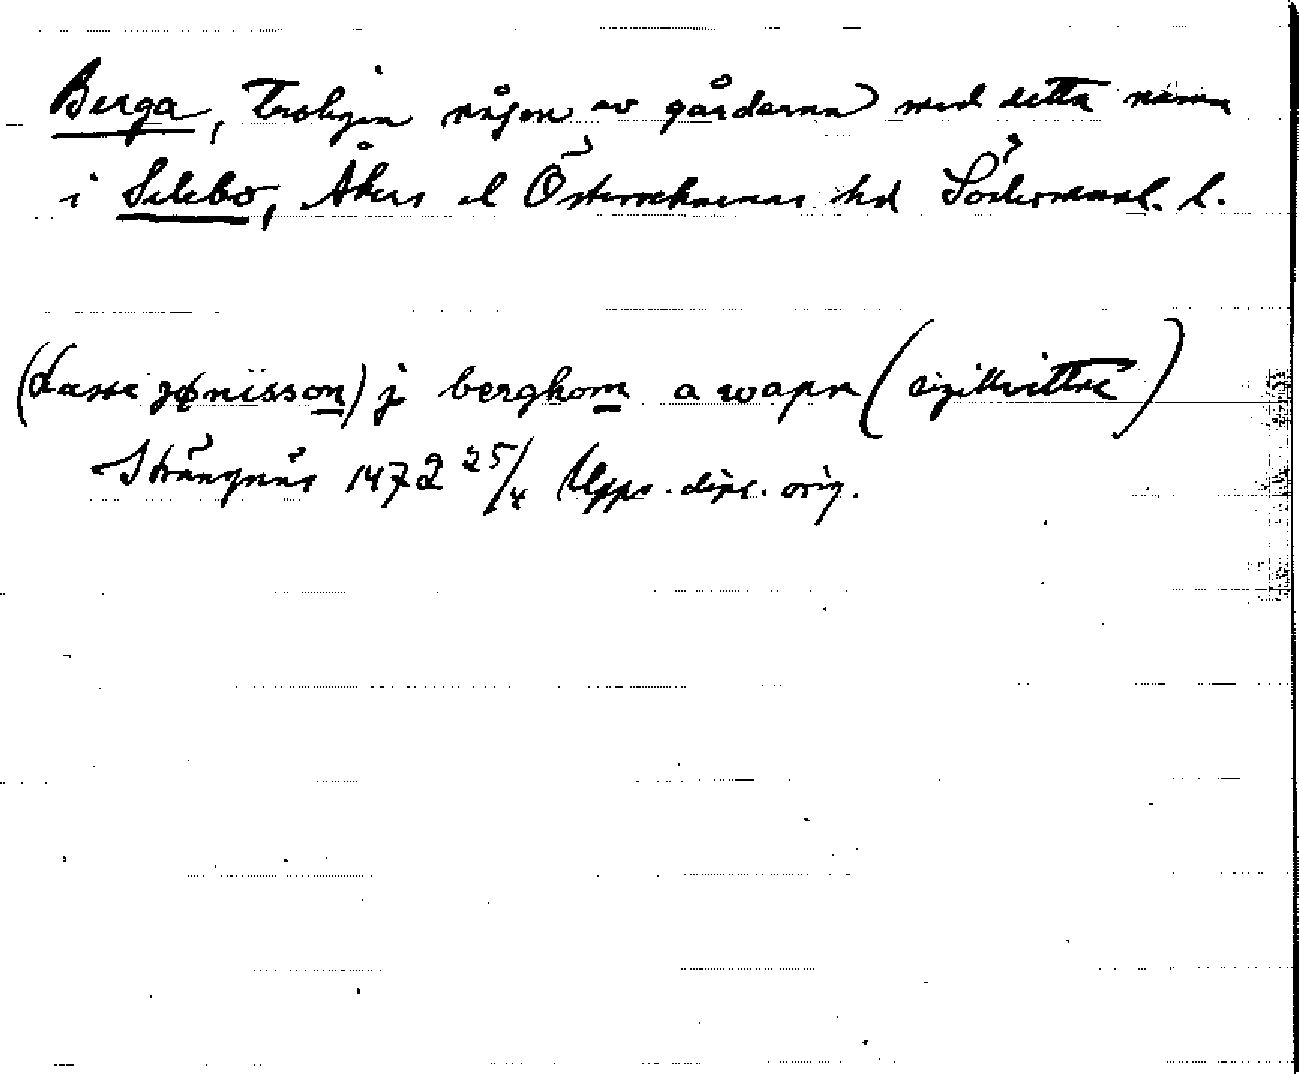 Berga, troligen någon av gårdarna med detta namn
i Selebo, Åkers el Österrekarnas hd Södermanl. l.
(Lasse jønisson) j berghom a wapn (sigillvittne)
Strängnäs 1472 25/4 Upps. dipl. orig.